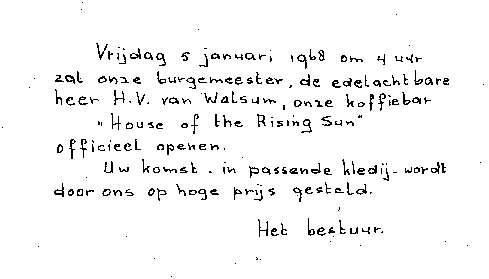 Vrijdag 5 januari 1968 om 4 uur
zal onze burgemeester, de edelachtbare
heer H.V. van Walsum, onze koffiebar
"House of the Rising Sun"
officieel openen.
Uw komst - in passende kledij - wordt
door ons op hoge prijs gesteld.
Het bestuur.